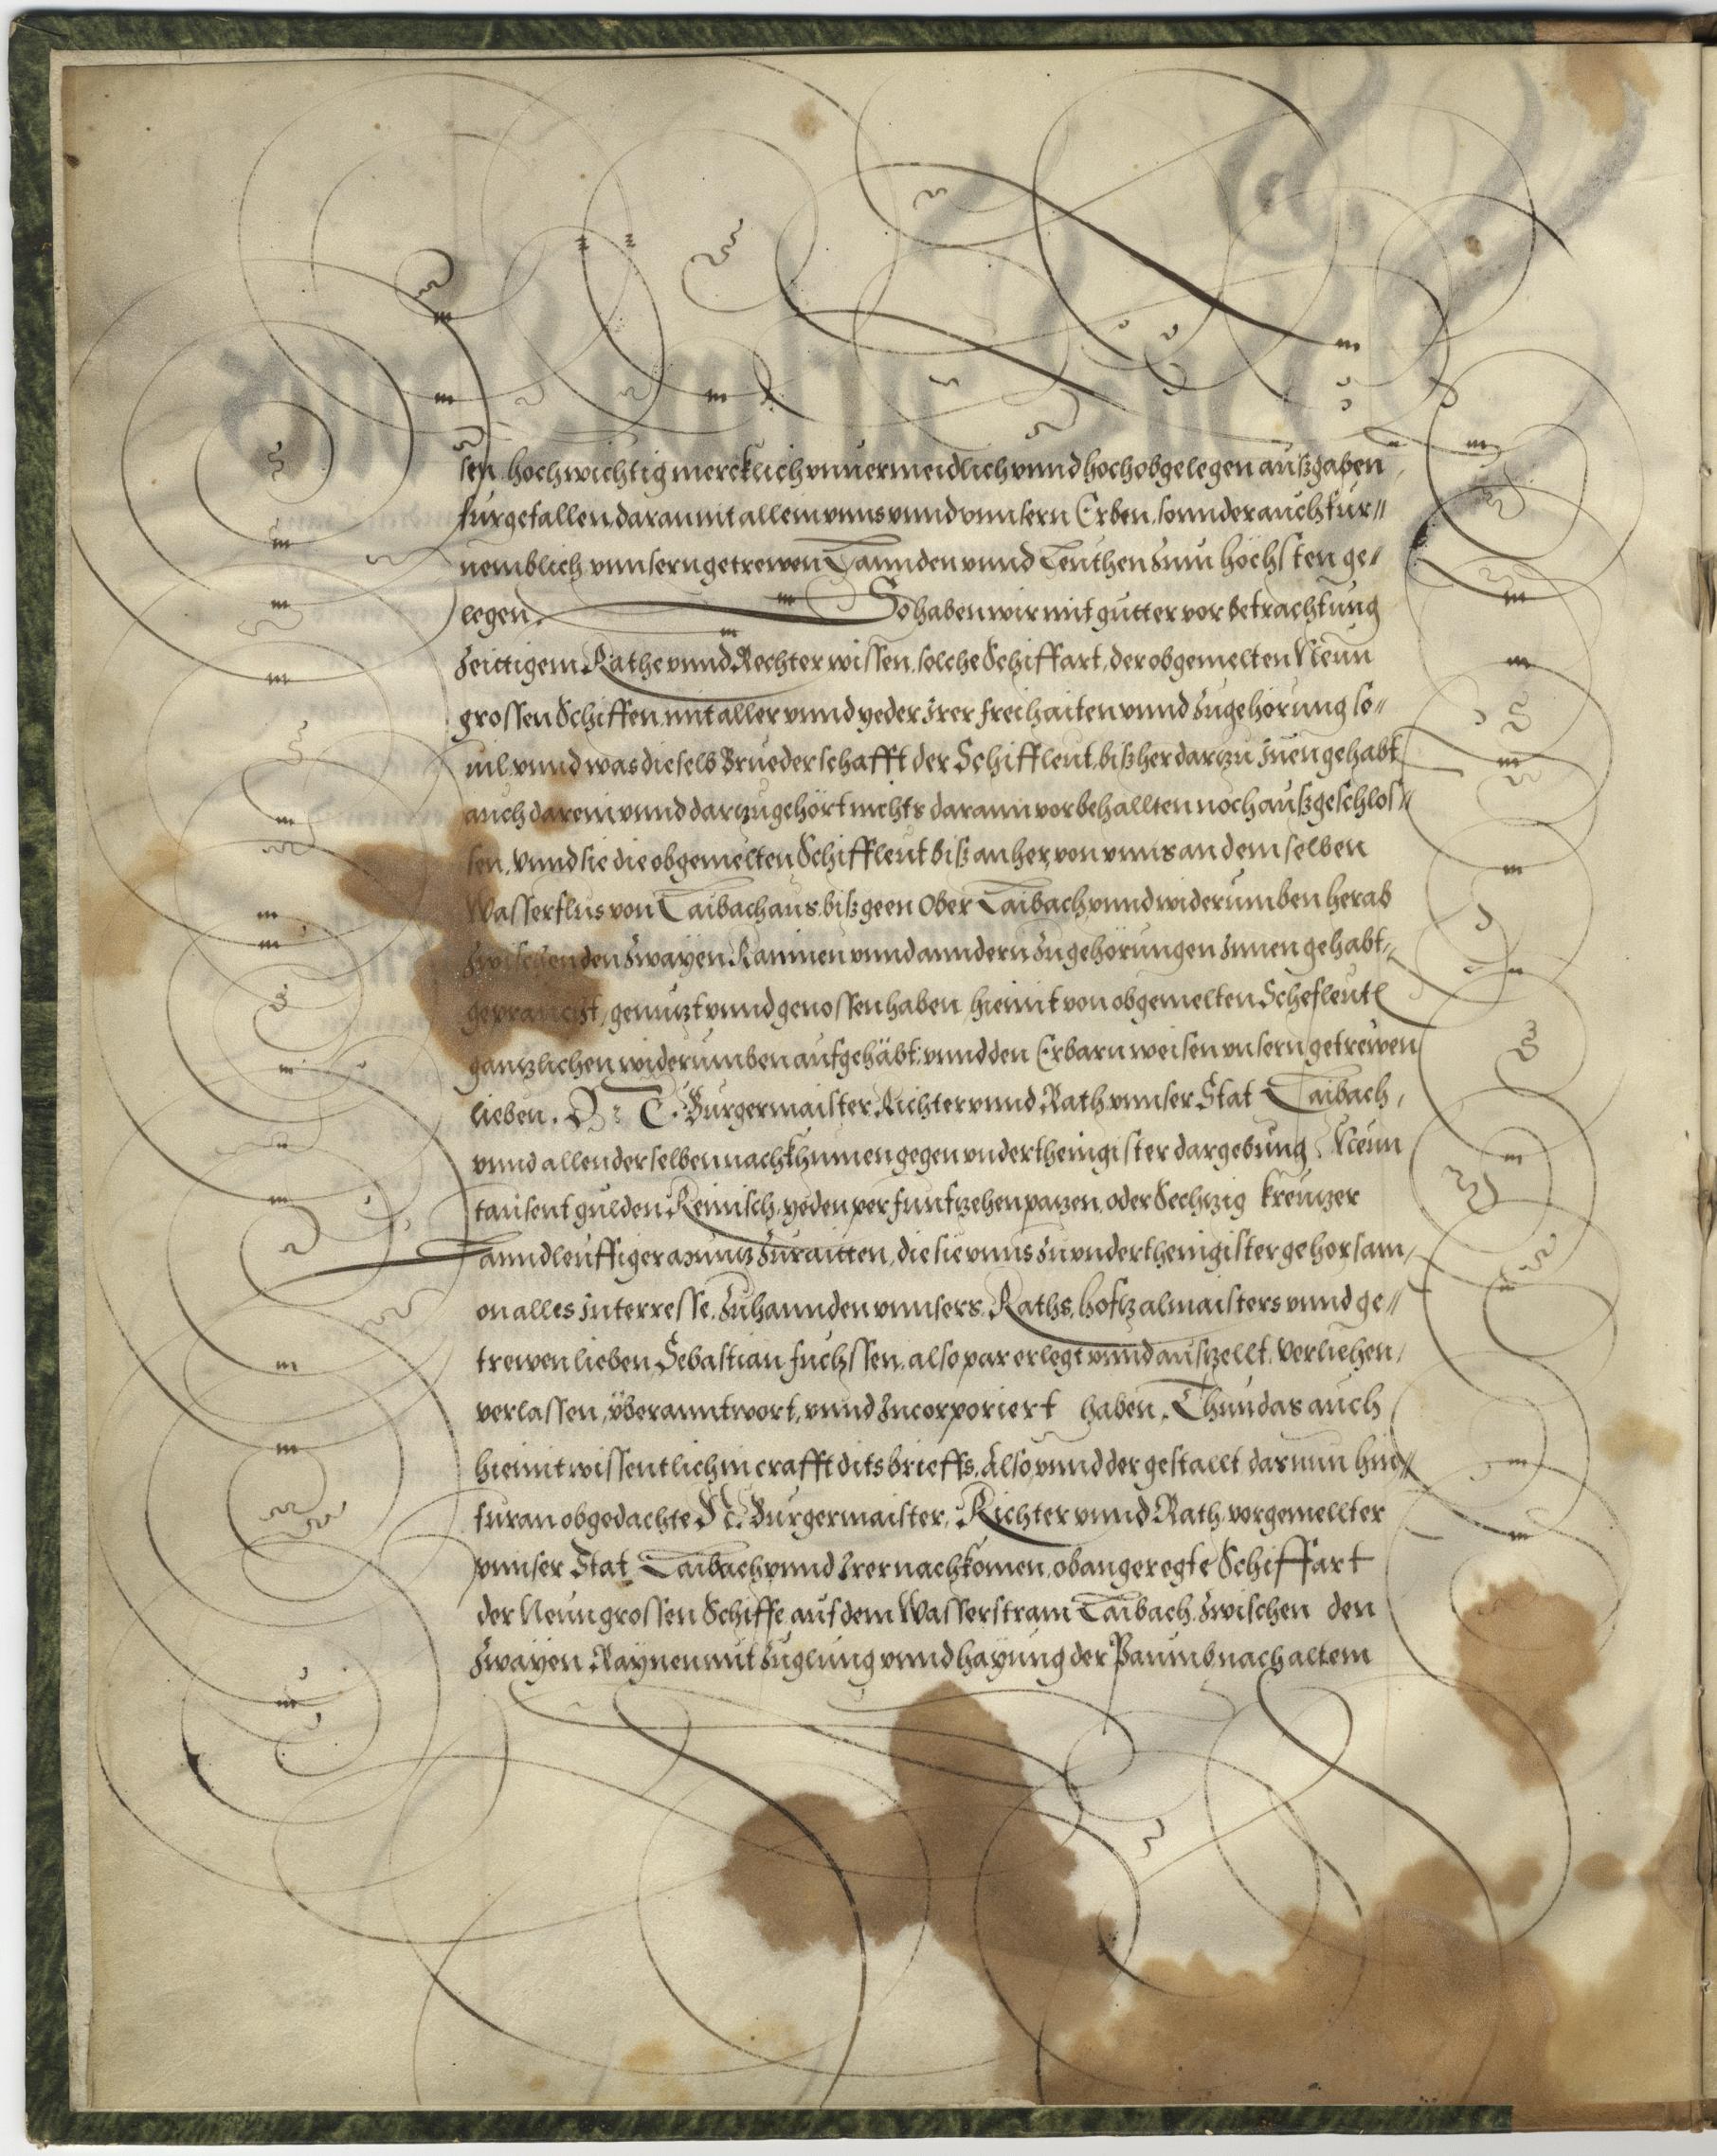 sen, hochwichtig mercklich vnuermeidlich vnnd hochobgelegen außgaben
furgefallen, daran nit allein vnns vnnd vnnsern Erben, sonnder auch fur//
nemblich vnnsern getrewen Lannden vnnd Leuthen zum höchsten ge//
legen. So haben wir mit gutter vorbetrachtung
zeittigem Rathe vnnd Rechter wissen, solche Schiffart, der obgemelten Neun
grossen Schiffen, mit aller vnnd yeder Irer freihaiten vnnd zugehörung so//
uil vnnd was dieselb Bruederschafft der Schiffleut, bißher darzu Innen gehabt
auch darein vnnd darzu gehört nichts darann vorbehallten noch außgeschlos//
sen, Vnnd sie die obgemelten Schiffleut biß anher, von vnns an demselben
Wasserflus von Laibach aus, biß geen Ober Laibach vnnd widerumben herab
zwischen den zwayen Rainnen vnnd anndern zugehörungen Innen gehabt,
gepraucht, genutzt vnnd genossen haben, hiemit von obgemelten Schefleutl
gantzlichen widerumben aufgehäbt: vnnd den Erbarn weisen vnsern getrewen
lieben. N: Burgermaister Richter vnnd Rath vnnser Stat Laibach,
vnnd allen derselben nachkhumen gegen vnderthenigister dargebung Neun
tausent gulden Reinisch, yeden per funfzehen patzen, oder Sechtzig kreutzer
Lanndleuffiger muntz zuraitten, die sie vnns zu vnderthenigister gehorsam,
on alles Interresse, zuhannden vnnsers Raths, hofzalmaisters vnnd ge//
trewen lieben Sebastian fuchssen, also par erlegt vnnd auszellt, Verliehen,
verlassen, yberanntwort, vnnd Incorporiert haben. Thun das auch
hiemit wissentlich in crafft dits brieffs, Also vnnd dergestallt das nun hin//
furan obgedachte N: Burgermaister, Richter vnnd Rath, vorgemellter
vnnser Stat Laibach vnnd Irer nachkomen, obangeregte Schiffart
der Neun grossen Schiffe auf dem Wasserstram Laibach, zwischen den
zwayen Raynen mit zuglung vnnd hayung der Paumb nach altem